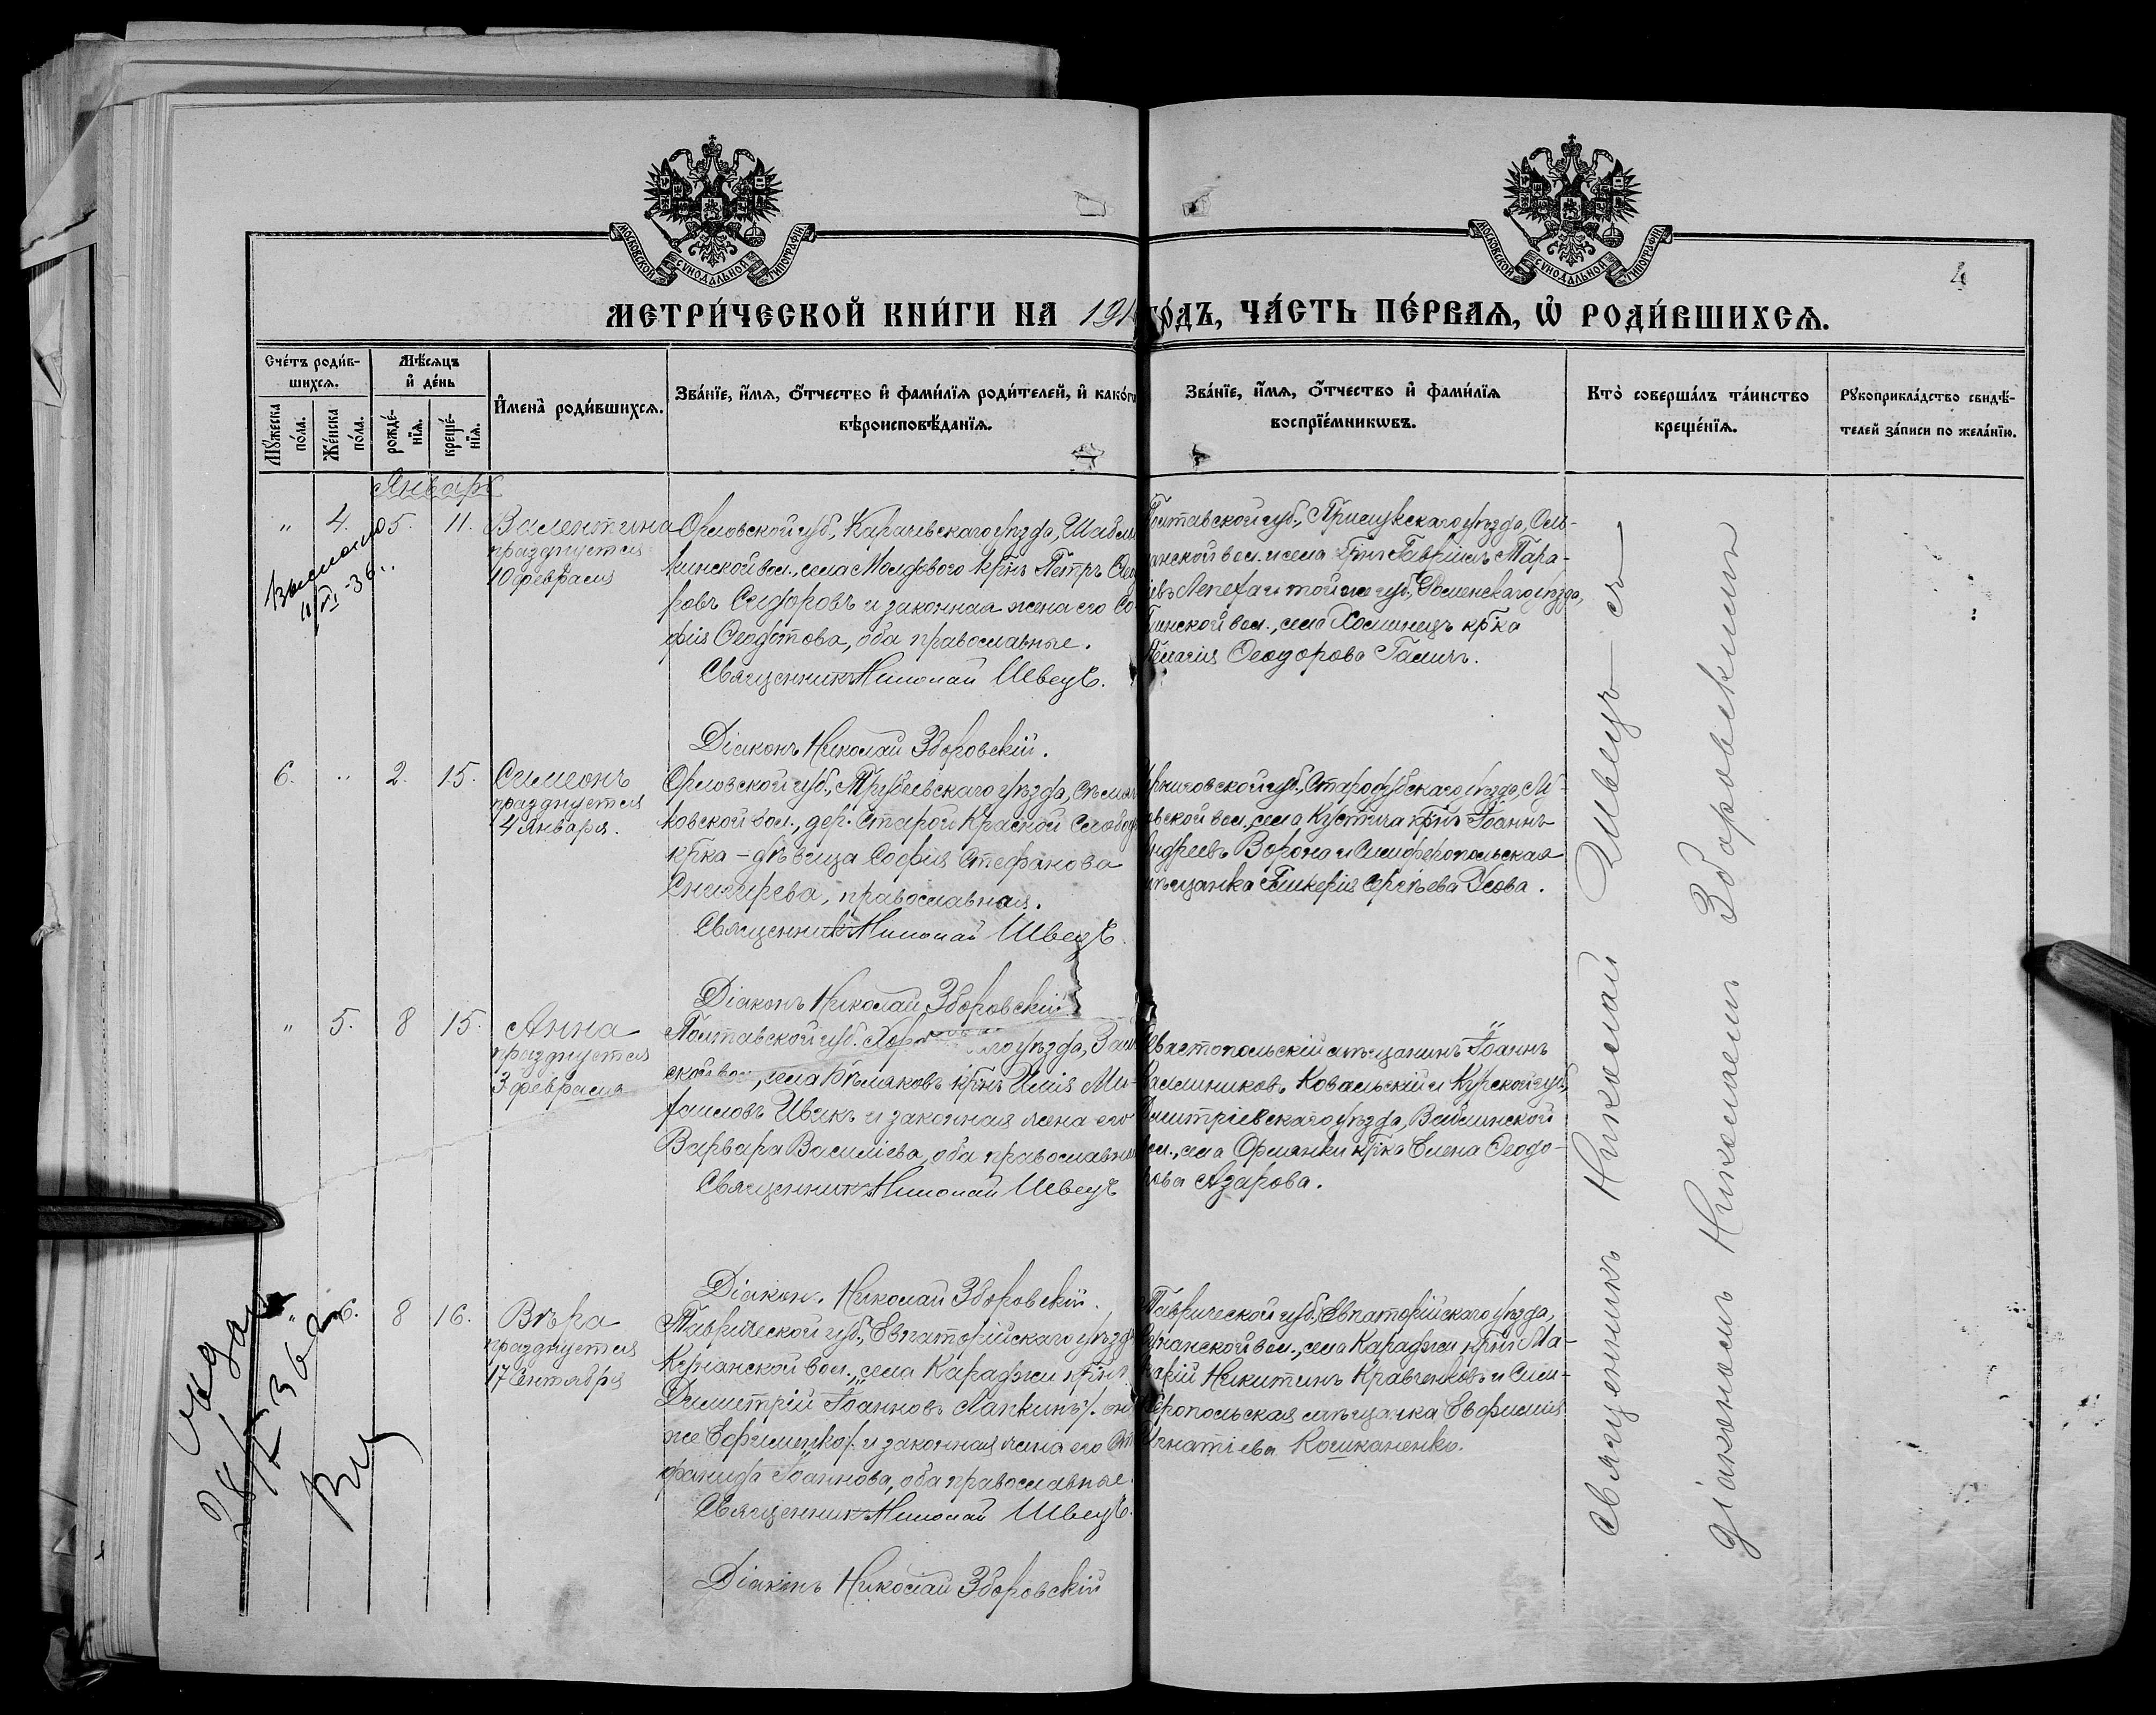 МОСКОВСКОЙ СѴНОДАЛЬНОЙ ТИПОГРАФІИ
МОСКОВСКОЙ СѴНОДАЛЬНОЙ ТИПОГРАФІИ
4
МЕТРИ́ЧЕСКОЙ КНИ́ГИ НА 191 го́дъ, ЧА́СТЬ ПЕ́РВАЯ, Ѡ҆ РОДИ́ВШИХСЯ.
Сче́тъ роди́в-
шихся.
Мѣ́сяцъ
и҆ де́нь
Мꙋ́жеска
по́ла.
Же́нска
по́ла.
рожде́-
нїя.
креще́-
нїя.
И҆мена̀ роди́вшихся.
Зва́нїе, и҆́мя, ѻ҆́тчество и҆ фами́лїя роди́телей, и҆ како́гѡ
вѣроисповѣ́данїя.
Зва́нїе, и҆́мя, ѻ҆́тчество и҆ фами́лїя
воспрїе́мникѡвъ.
Кто̀ соверша́лъ та́инство
креще́нїя.
Рꙋкоприкла́дство свидѣ́-
телей за́писи по жела́нїю.
Январь
" 4. 5. 11. Валентина
празднуется
10 февраля
выслано
Орловской губ., Карачевскаго уѣзда, Шабл
кинской вол., села Молодового кр҃нъ Петръ Ѳео
ровъ Сидоровъ и законная жена его Со
фія Ѳеодотова, оба православные.
Священникъ Николай Швецъ.
Діаконъ Николай Зборовскій.
Полтавской губ., Прилукскаго уѣзда,
анской вол. и села кр҃нъ Гавріилъ Тара-
іевъ Лепеха и той же губ., Роменскаго уѣзда,
инской вол., села Хоминецъ кр҃ка
Пелагія Ѳеодорова Галичъ.
6. " 2. 15. Симеонъ
празднуется
4 Января.
Орловской губ., Трубчевскаго уѣзда,
ковской вол., дер. Старой Красной Слобод
кр҃ка - дѣвица Софія Стефанова
Снигирева, православная.
Священникъ Николай Швецъ.
Діаконъ Николай Зборовскій
Черниговской губ., Стародубскаго уѣзда, М-
овской вол., села Кустича кр҃нъ Іоаннъ
Андреевъ Ворона и Симферопольская
мѣщанка Гликерія Сергѣева Усова.
" 5. 8 15. Анна
празднуется
3 февраля
Полтавской губ. Хор уѣзда,
ской вол., села Бѣляковъ кр҃нъ Илія Ми-
хаиловъ Цвякъ и законная жена его
Варвара Василіева, оба православны
Священникъ Николай Швецъ
Діакон. Николай Зборовскій.
Севастопольскій мѣщанинъ Іоаннъ
Каллиниковъ Ковальскій и Курской губ.,
Дмитріевскаго уѣзда,
вол., села кр҃ка Елена Ѳеодо-
рова Азарова.
" 6. 8 16. Вѣра
празднуется
17 Сентября
Таврической губ., Евпаторійскаго уѣзд
вол., села Караджи кр҃нъ
Димитрій Іоанновъ Лапкинъ /. он
же Ефименко/. и законная жена его Сте
фанида Іоаннова, оба православные.
Священникъ Николай Швецъ.
Діаконъ Николай Зборовскій
Таврической губ., Евпаторійскаго уѣзда,
вол., села Караджи кр҃нъ Ма-
карій Никитинъ Кравченковъ и Сим-
феропольская мѣщанка Евфимія
Игнатіева Кошканенко.
Выдан
Священникъ Николай Швецъ съ
діакономъ Николаемъ Зборовскимъ